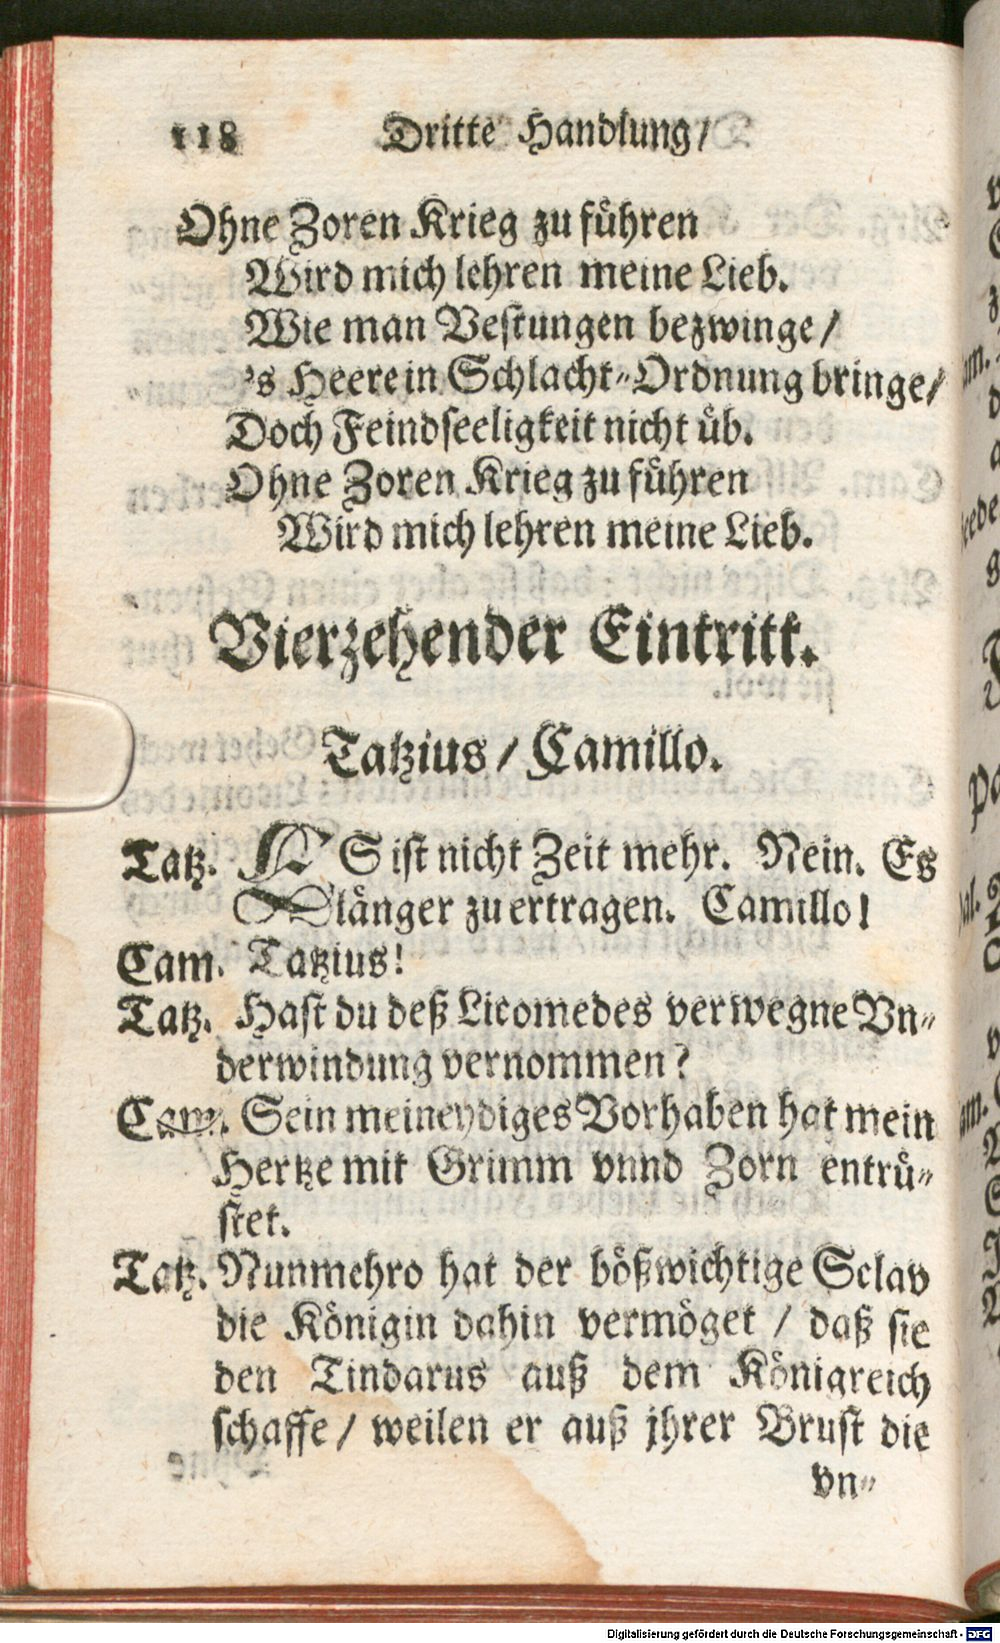 118 Dritte Handlung/
Ohne Zoren Krieg zu führen
Wird mich lehren meine Lieb.
Wie man Vestungen bezwinge/
's Heere in Schlacht-Ordnung bringe/
Doch Feindseeligkeit nicht üb.
Ohne Zoren Krieg zu führen
Wird mich lehren meine Lieb.
Vierzehender Eintritt.
Tatzius / Camillo.
Tatz. ES ist nicht Zeit mehr. Nein. Es
länger zu ertragen. Camillo!
Cam. Tatzius!
Tatz. Hast du deß Licomedes verwegne Vn-
derwindung vernommen?
Cam. Sein meineydiges Vorhaben hat mein
Hertze mit Grimm vnnd Zorn entrü-
stet.
Tatz. Nunmehro hat der bößwichtige Sclav
die Königin dahin vermöget / daß sie
den Tindarus auß dem Königreich
schaffe / weilen er auß jhrer Brust die
vn-
Digitalisierung gefördert durch die Deutsche Forschungsgemeinschaft - DFG